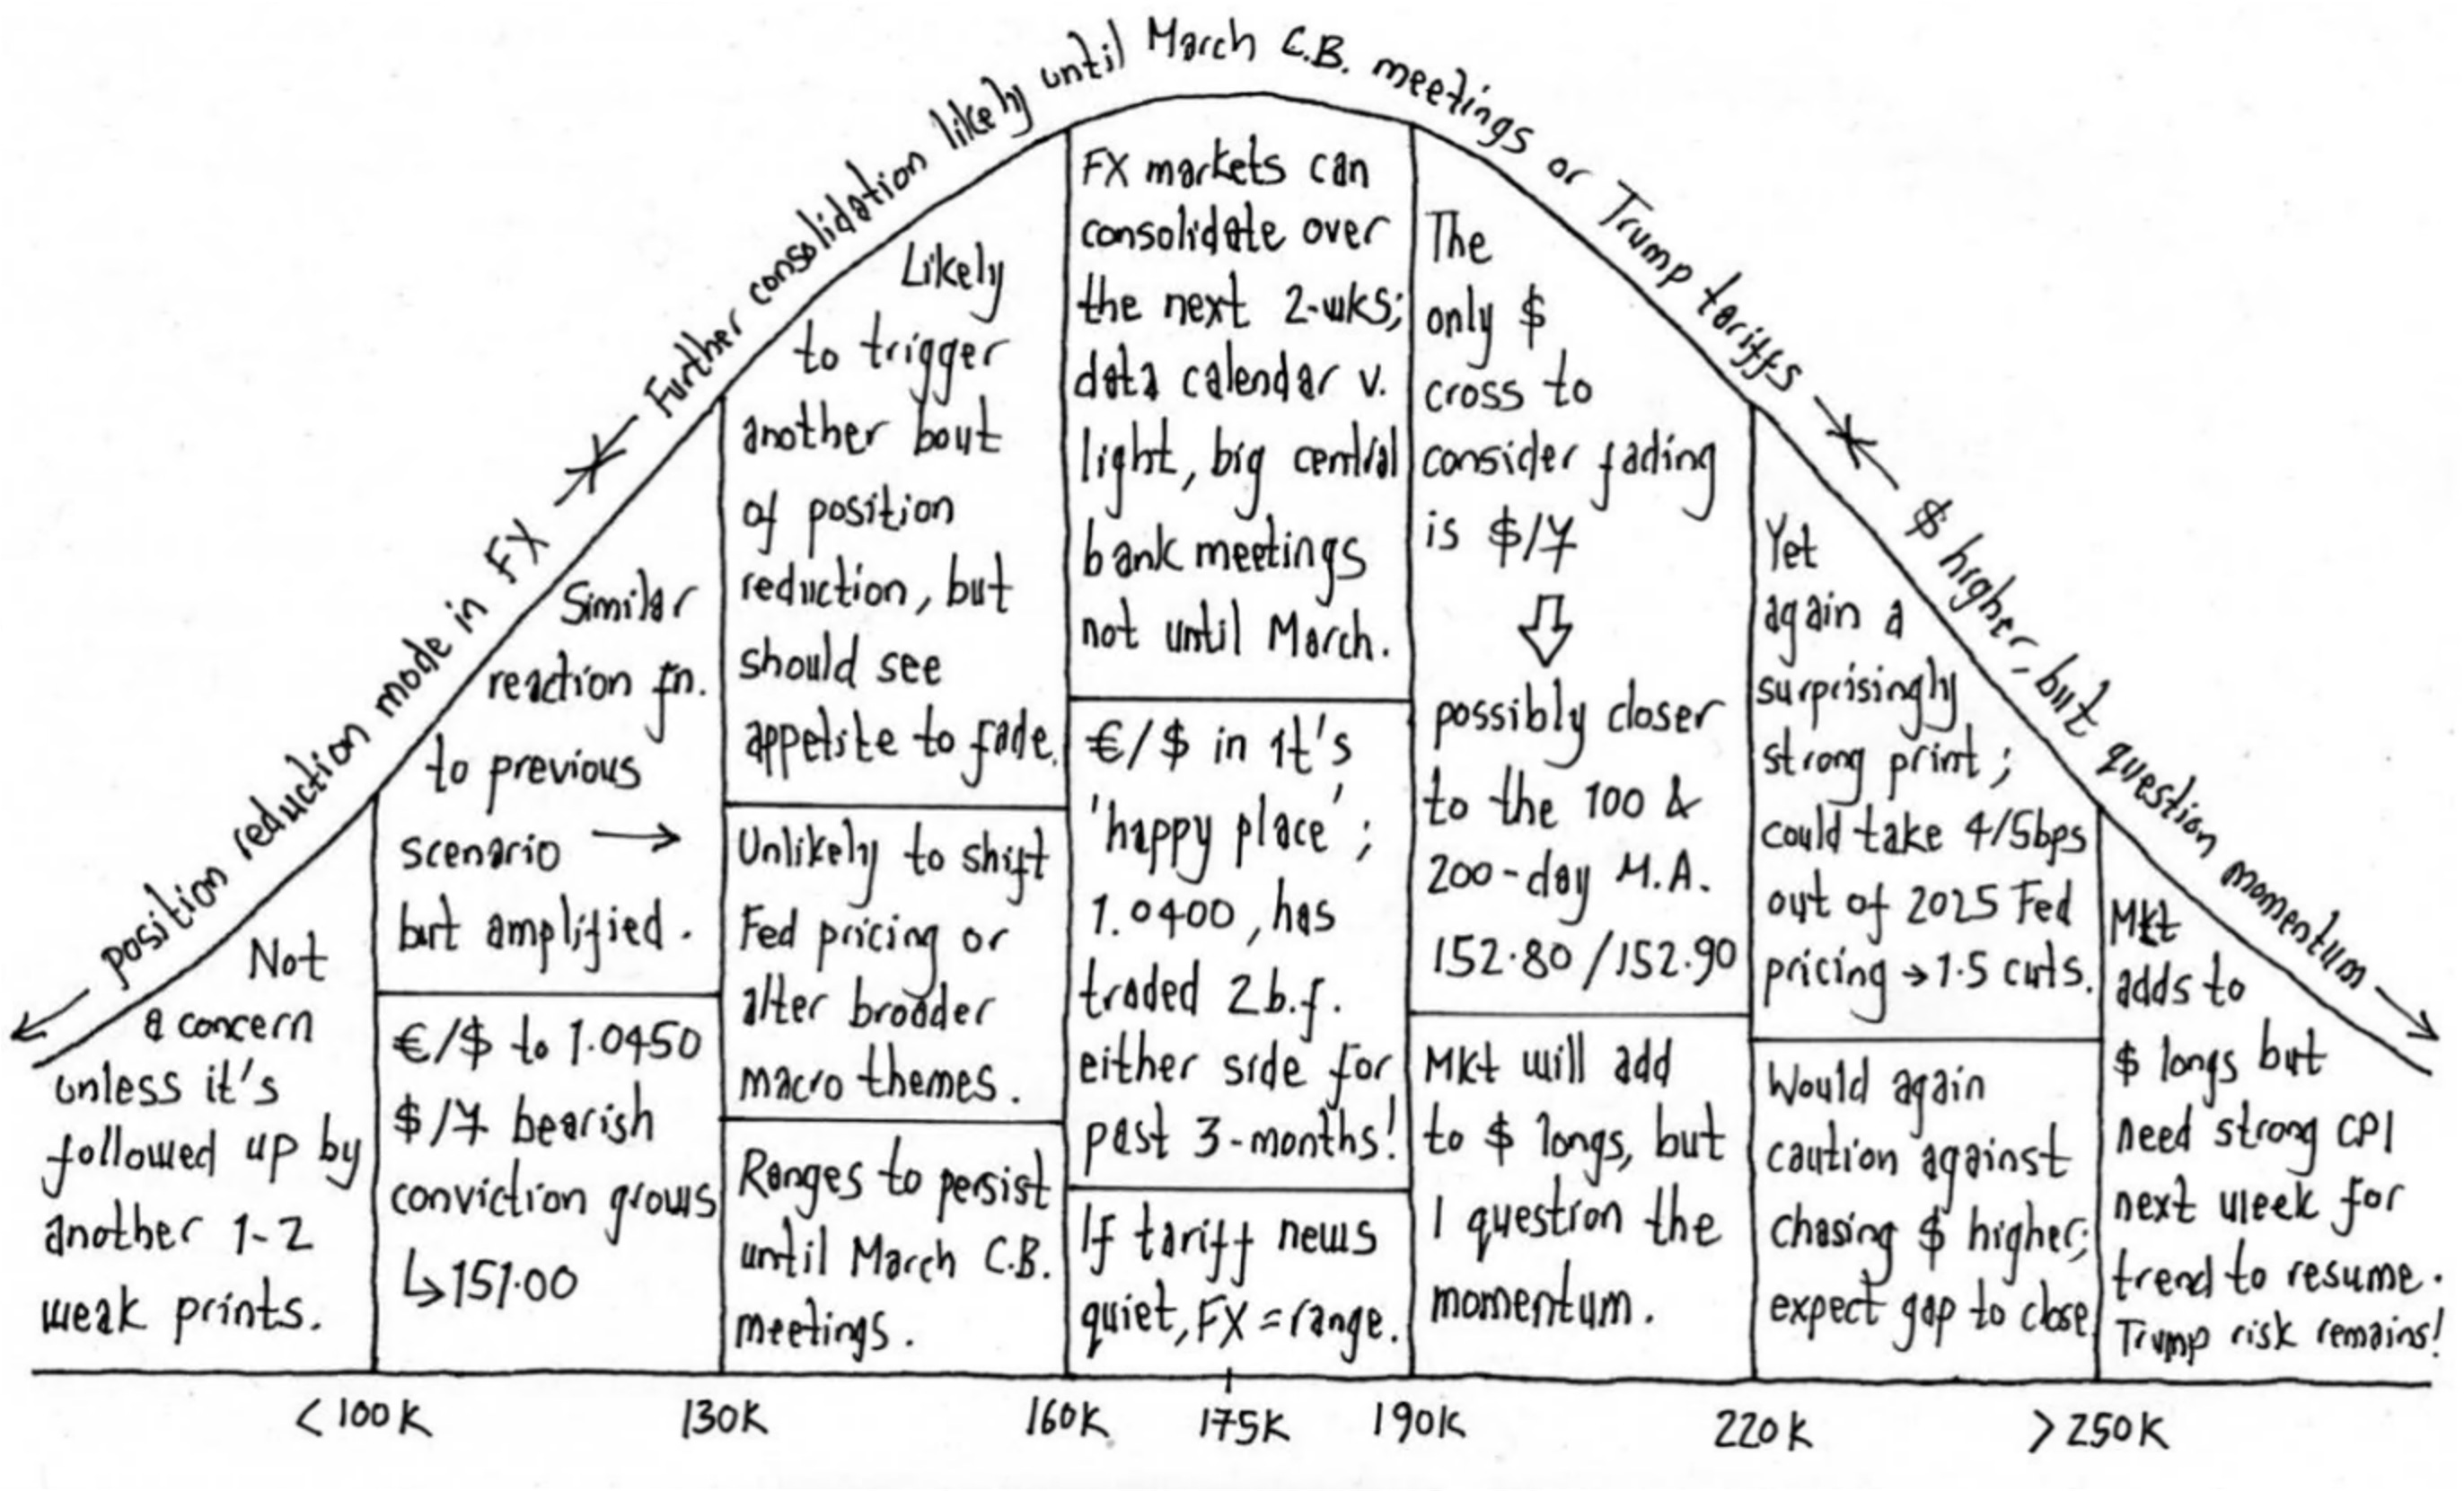 position reduction mode in FX
Further consolidation likely until March C.B. meetings or Trump tariffs
$ higher, but question momentum
Not
a concern
unless it's
followed up by
another 1-2
weak prints.
Similar
reaction fn.
to previous
scenario →
but amplified.
€/$ to 1.0450
$/¥ bearish
conviction grows
↳151.00
Likely
to trigger
another bout
of position
reduction, but
should see
appetite to fade.
Unlikely to shift
Fed pricing or
alter broader
macro themes.
Ranges to persist
until March C.B.
meetings.
FX markets can
consolidate over
the next 2-wks;
data calendar v.
light, big central
bank meetings
not until March.
€/$ in it's
'happy place';
1.0400, has
traded 2b.f.
either side for
past 3-months!
If tariff news
quiet, FX = range.
The
only $
cross to
consider fading
is $/¥
⇩
possibly closer
to the 100 &
200-day M.A.
152.80/152.90
Mkt will add
to $ longs, but
I question the
momentum.
Yet
again a
surprisingly
strong print;
could take 4/5bps
out of 2025 Fed
pricing → 1.5 cuts.
Would again
caution against
chasing $ higher;
expect gap to close
Mkt
adds to
$ longs but
need strong CPI
next week for
trend to resume.
Trump risk remains!
<100K 130K 160K 175K 190K 220K >250K